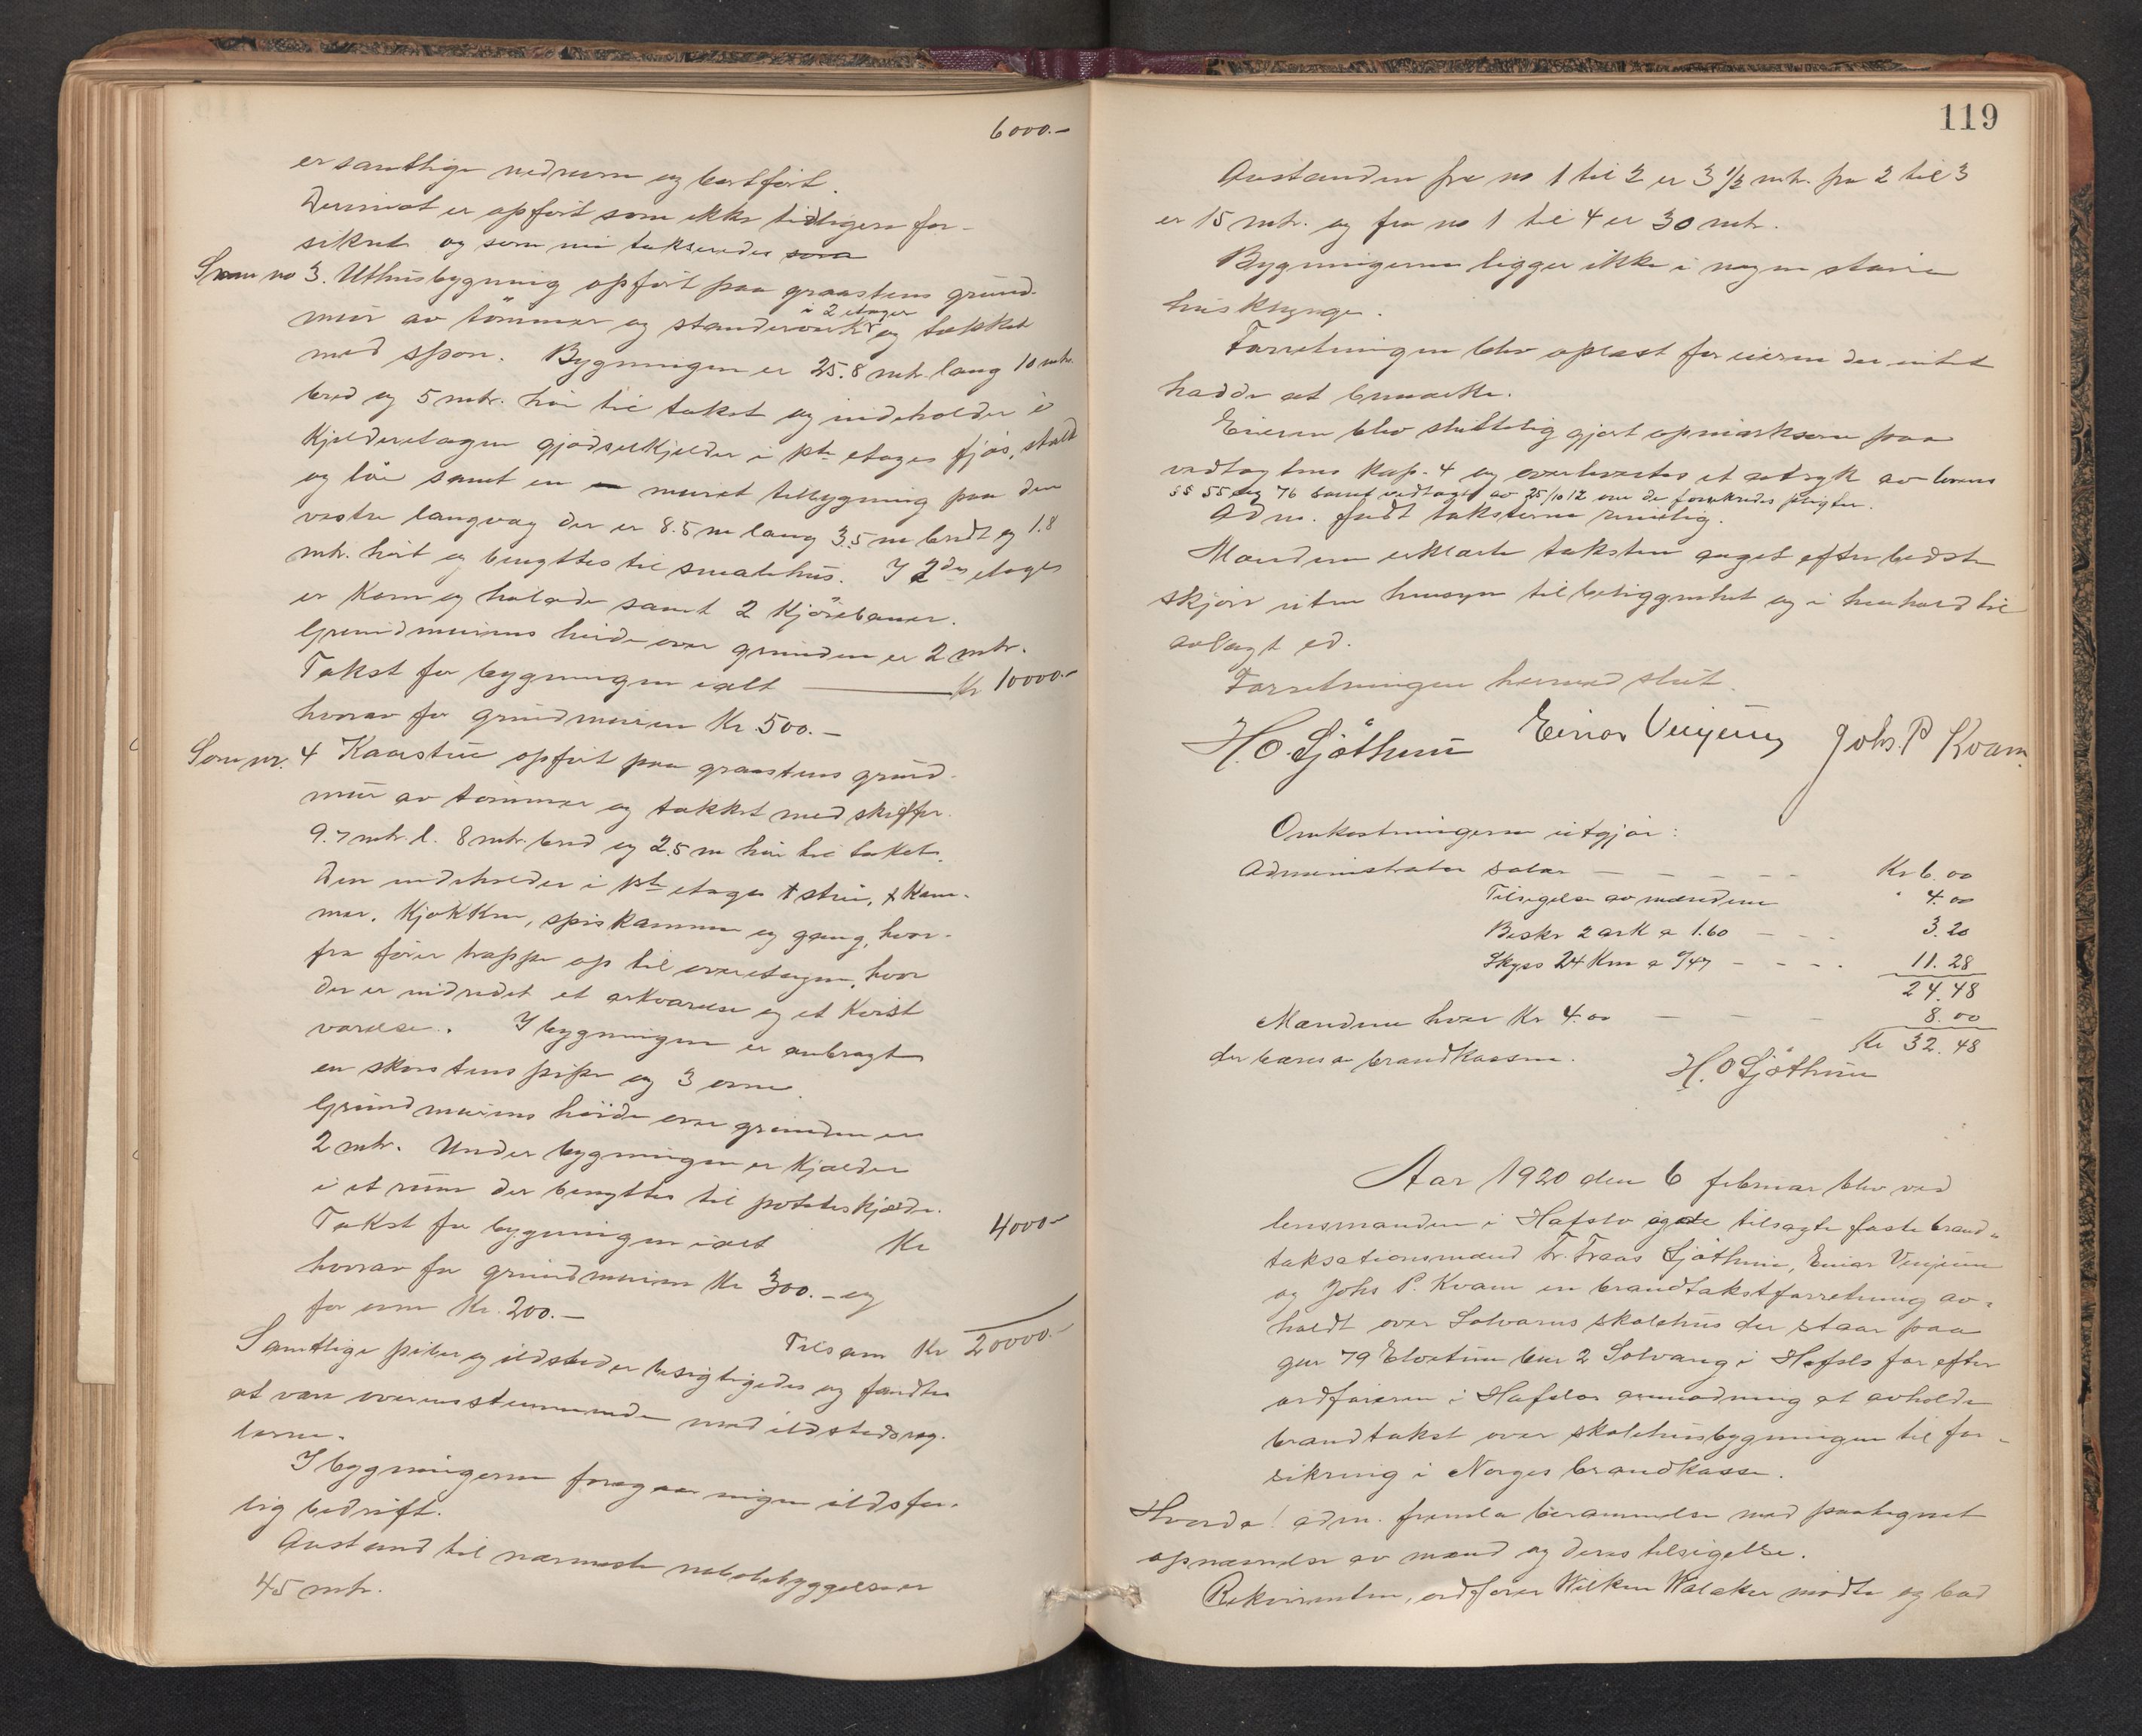 6000.-
er samtlige nedrevne og bortfört.
Derimot er opfört som ikke tidligere for-
sikret og som nu takseredes som
Som no 3. Uthusbygning opfört paa graastens grund-
i 2 etager
mur av tömmer og standerverk og tækket
med spon. Bygningen er 25.8 mtr. lang 10 mtr.
bred og 5 mtr. höi til taket og indeholder i
Kjelderetagen gjödselkjelder i 1ste etage fjös, stald
og löe samt en muret tilbygning paa den
vestre langvæg der er 8.5 m lang 3.5 m bredt og 1.8
mtr. höit og benyttes til smalehus. I 2den etage
er Korn og høladе samt 2 Kjörebaner.
Grundmurens höide over grunden er 2 mtr.
Takst for bygningen ialt Kr 10000.-
hvorav for grundmuren Kr. 500.-
Som nr. 4 Kaarstue opfört paa graastens grund-
mur av tømmer og tækket med skiffer.
9.7 mtr. l. 8 mtr. bred og 2.5 m höi til taket.
Den indeholder i 1ste etage 1 stue, 1 Kam-
mer, Kjøkken, spiskammer og gang, hvor-
fra förer trappe op til overetagen, hvor
der er indredet et arkværelse og et Kvist
værelse. I bygningen er anbragt
en skorstenspipe og 3 ovne.
Grundmurens höide over grunden er
2 mtr. Under bygningen er Kjælder
i et rum der benyttes til potetеskjælder.
Takst for bygningen ialt Kr 4000-
hvorav for grundmuren Kr 300.- og
for ovne Kr. 200.-
Tilsam Kr 20000.-
Samtlige piber og ildsteder besigtigedes og fandtes
at være overensstemmende med ildstedsreg-
lerne.
I bygningerne foregaar ingen ildsfar-
lig bedrift.
Avstand til nærmeste nabobebyggelse er
45 mtr.
119
Avstanden fra no 1 til 2 er 3 1/2 mtr. fra 2 til 3
er 15 mtr. og fra no 1 til 4 er 30 mtr.
Bygningerne ligger ikke i nogen større
husklynge.
Forretningen blev oplæst for eieren der intet
hadde at bemærke.
Eieren blev skriftelig gjort opmerksom paa
vedtægtens Kap. 4 og overleveres et avtryk av lovens
§§ 55 og 76 samt vedtægt av 25/10 12 om de forsikredes pligter.
Adm. fandt taksterne rimelig.
Mændene erklærte taksten avgit efter bedste
skjön uten hensyn til beliggenhet og i henhold til
avlagt ed.
Forretningen hermed slut.
H.O. Sjöthun Einar Venjum Johs. P Kvam.
Omkostningerne utgjör:
Administrator salær Kr 6.00
Tilsigelse av mændene " 4.00
Beskr 2 ark a 1.60 3.20
Skyss 24 Km a 0/47 11.28
24.48
Mændene hver Kr 4.00 8.00
Kr 32.48
der bæres av brandkassen. H.O Sjöthun
Aar 1920 den 6 februar blev ved
lensmanden i Hafslo og de tilsagte faste brand-
taksationsmænd Hr. Fraas Sjöthun, Einar Venjum
og Johs P. Kvam en brandtakstforretning av-
holdt over Solvorns skolehus der staar paa
gnr 79 bnr 2 Solvang i Hafslo for efter
ordförerens i Hafslo anmodning at avholde
brandtakst over skolehusbygningen til for-
sikring i Norges brandkasse.
Hvorda! adm. fremla berammelse med paategnet
opnævnelse av mænd og deres tilsigelse.
Rekvirenten, ordförer Wilken Walaker mødte og bad